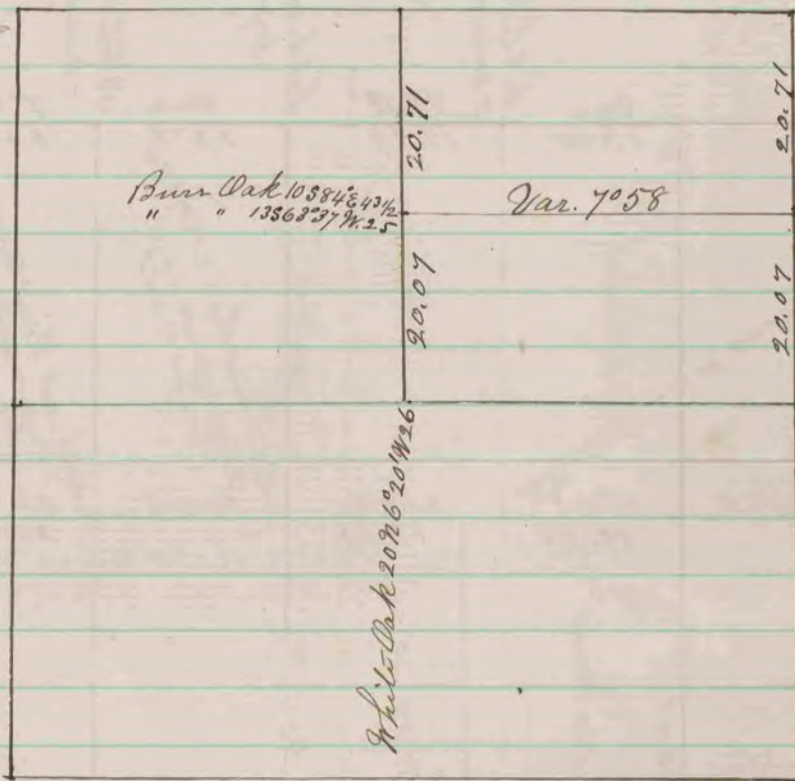 20.71
20.71
Burr Oak 10 S 84° E 43 1/2
" " 13 S 63° 37 W. 25
Var. 7° 58
20.07
20.07
White Oak 20 N 6° 20' W 26